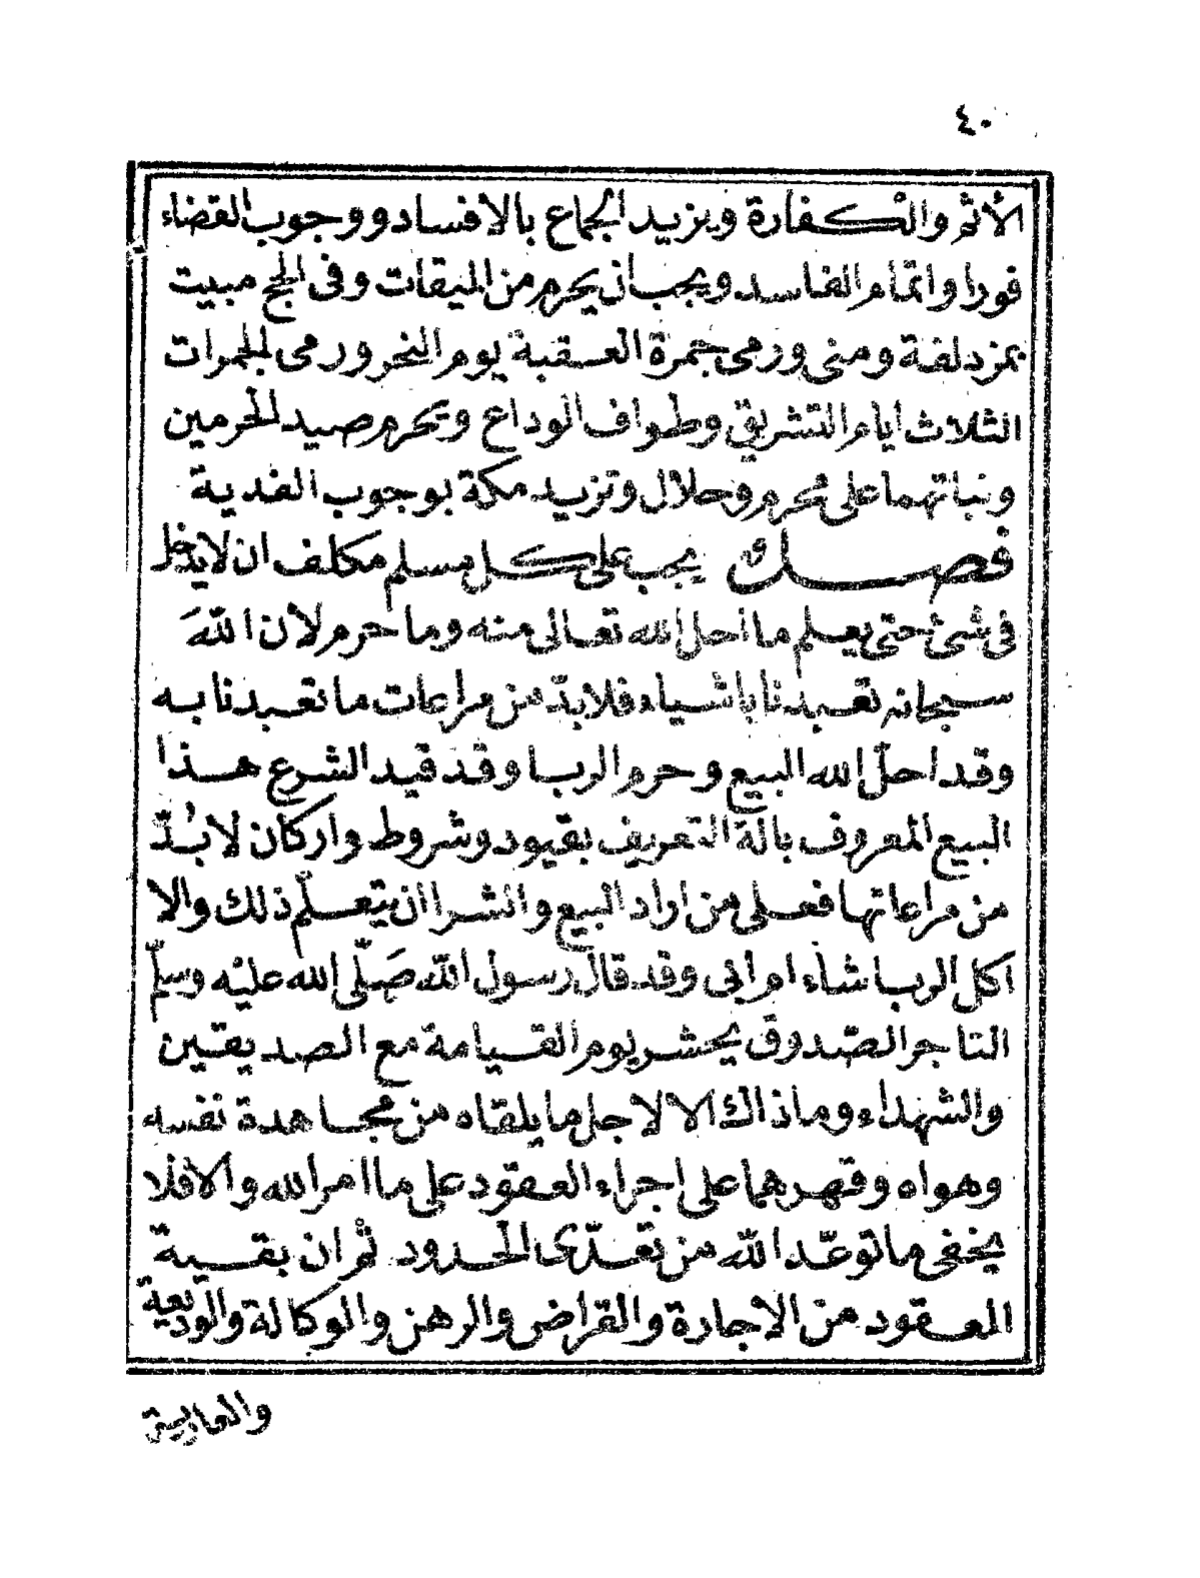 ٤٠
الأثم والكفارة ويزيد الجماع بالافساد ووجوب القضاء
فورا واتمام الفاسد ويجب ان يحرم من الميقات وفى الحج مبيت
بمزدلفة ومنى ورمى جمرة العقبة يوم النحر ورمى الجمرات
الثلاث ايام التشريق وطواف الوداع ويحرم صيد الحرمين
ونباتهما على محرم وحلال وتزيد مكة بوجوب الفدية
فصل يجب على كل مسلم مكلف ان لا يدخل
فى شئ حتى يعلم ما احل الله تعالى منه وما حرم لأن اللّهَ
سبحانه تعبدنا باشياء فلا بدّ من مراعات ما تعبدنا به
وقد احلّ الله البيع وحرم الربا وقد قيد الشرع هذا
البيع المعروف بالة التعريف بقيود وشروط واركان لا بُدّ
من مراعاتها فعلى من اراد البيع والشرا ان يتعلّم ذلك والا
اكل الربا شاء ام ابى وقد قال رسول اللّه صَلّى الله عليْه وسلّم
التاجر الصّدوق يحشر يوم القيامة مع الصديقين
والشهداء وما ذاك الا لاجل ما يلقاه من مجاهدة نفسه
وهواه وقهرهما على اجراء العقود على ما امر الله والا فلا
يخفى ما توعّد اللّه من تعدّى الحدود ثم ان بقية
المعقود من الاجارة والقراض والرهن والوكالة والوديعة
والعارية